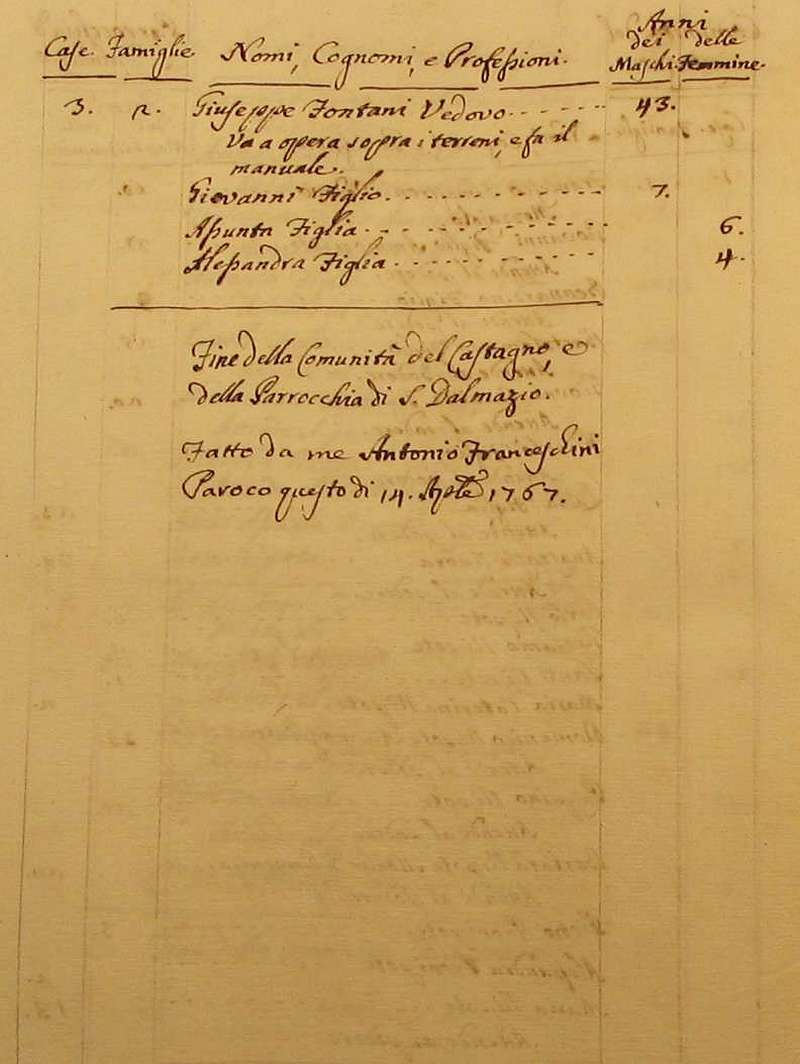 Anni
Case. Famiglie. Nomi, Cognomi, e Professioni. dei delle
Maschi. Femmine.
3. 2. Giuseppe Fontani Vedovo 43.
Va a opera sopra i terreni, e fa il
manuale.
Giovanni Figlio. 7.
Asunta Figlia 6.
Alessandra Figlia 4.
Fine della Comunità del Castagno, e
della Parrocchia di S. Dalmazio.
Fatto da me Antonio Franceschini
Paroco questo dì 14. 1767.